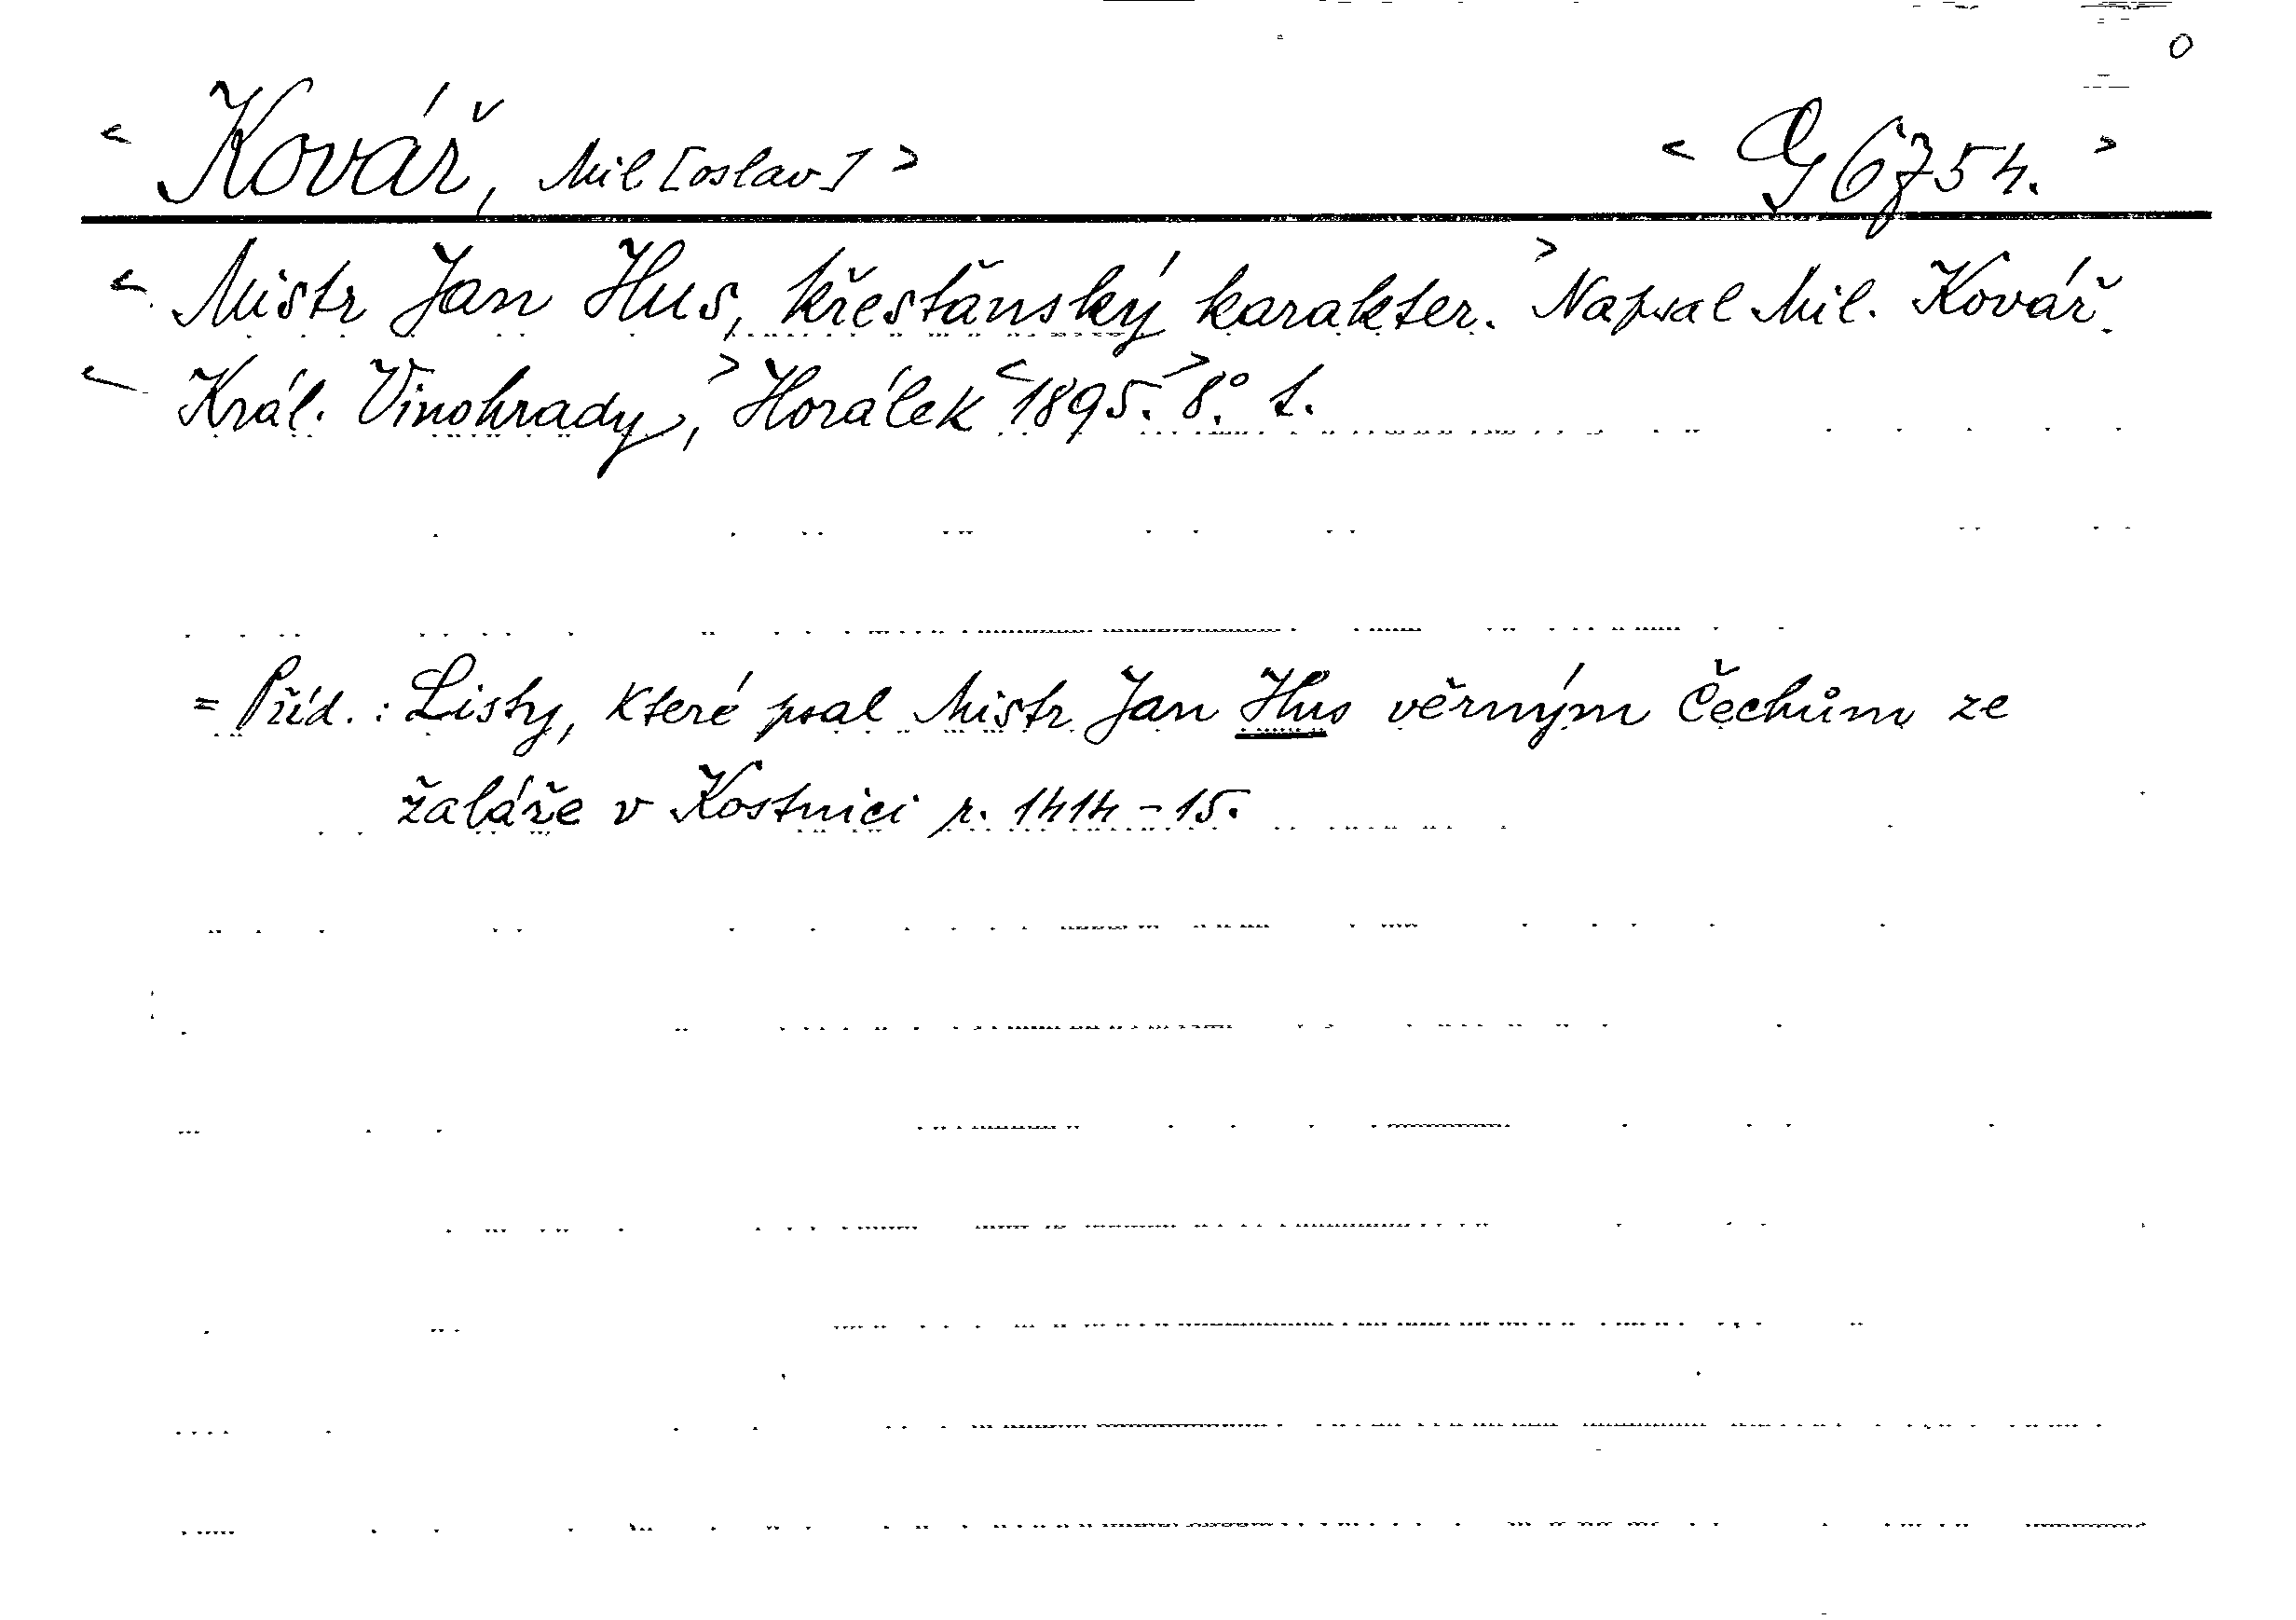 < Kovář, Mil[oslav] > < G 6754. >
< Mistr Jan Hus, křesťanský karakter. > Napsal Mil. Kovář.
< Král. Vinohrady, > Horálek < 1895. > 8.° 1.
= Příd.: Listy, které psal Mistr Jan Hus věrným Čechům ze
žaláře v Kostnici r. 1414-15.